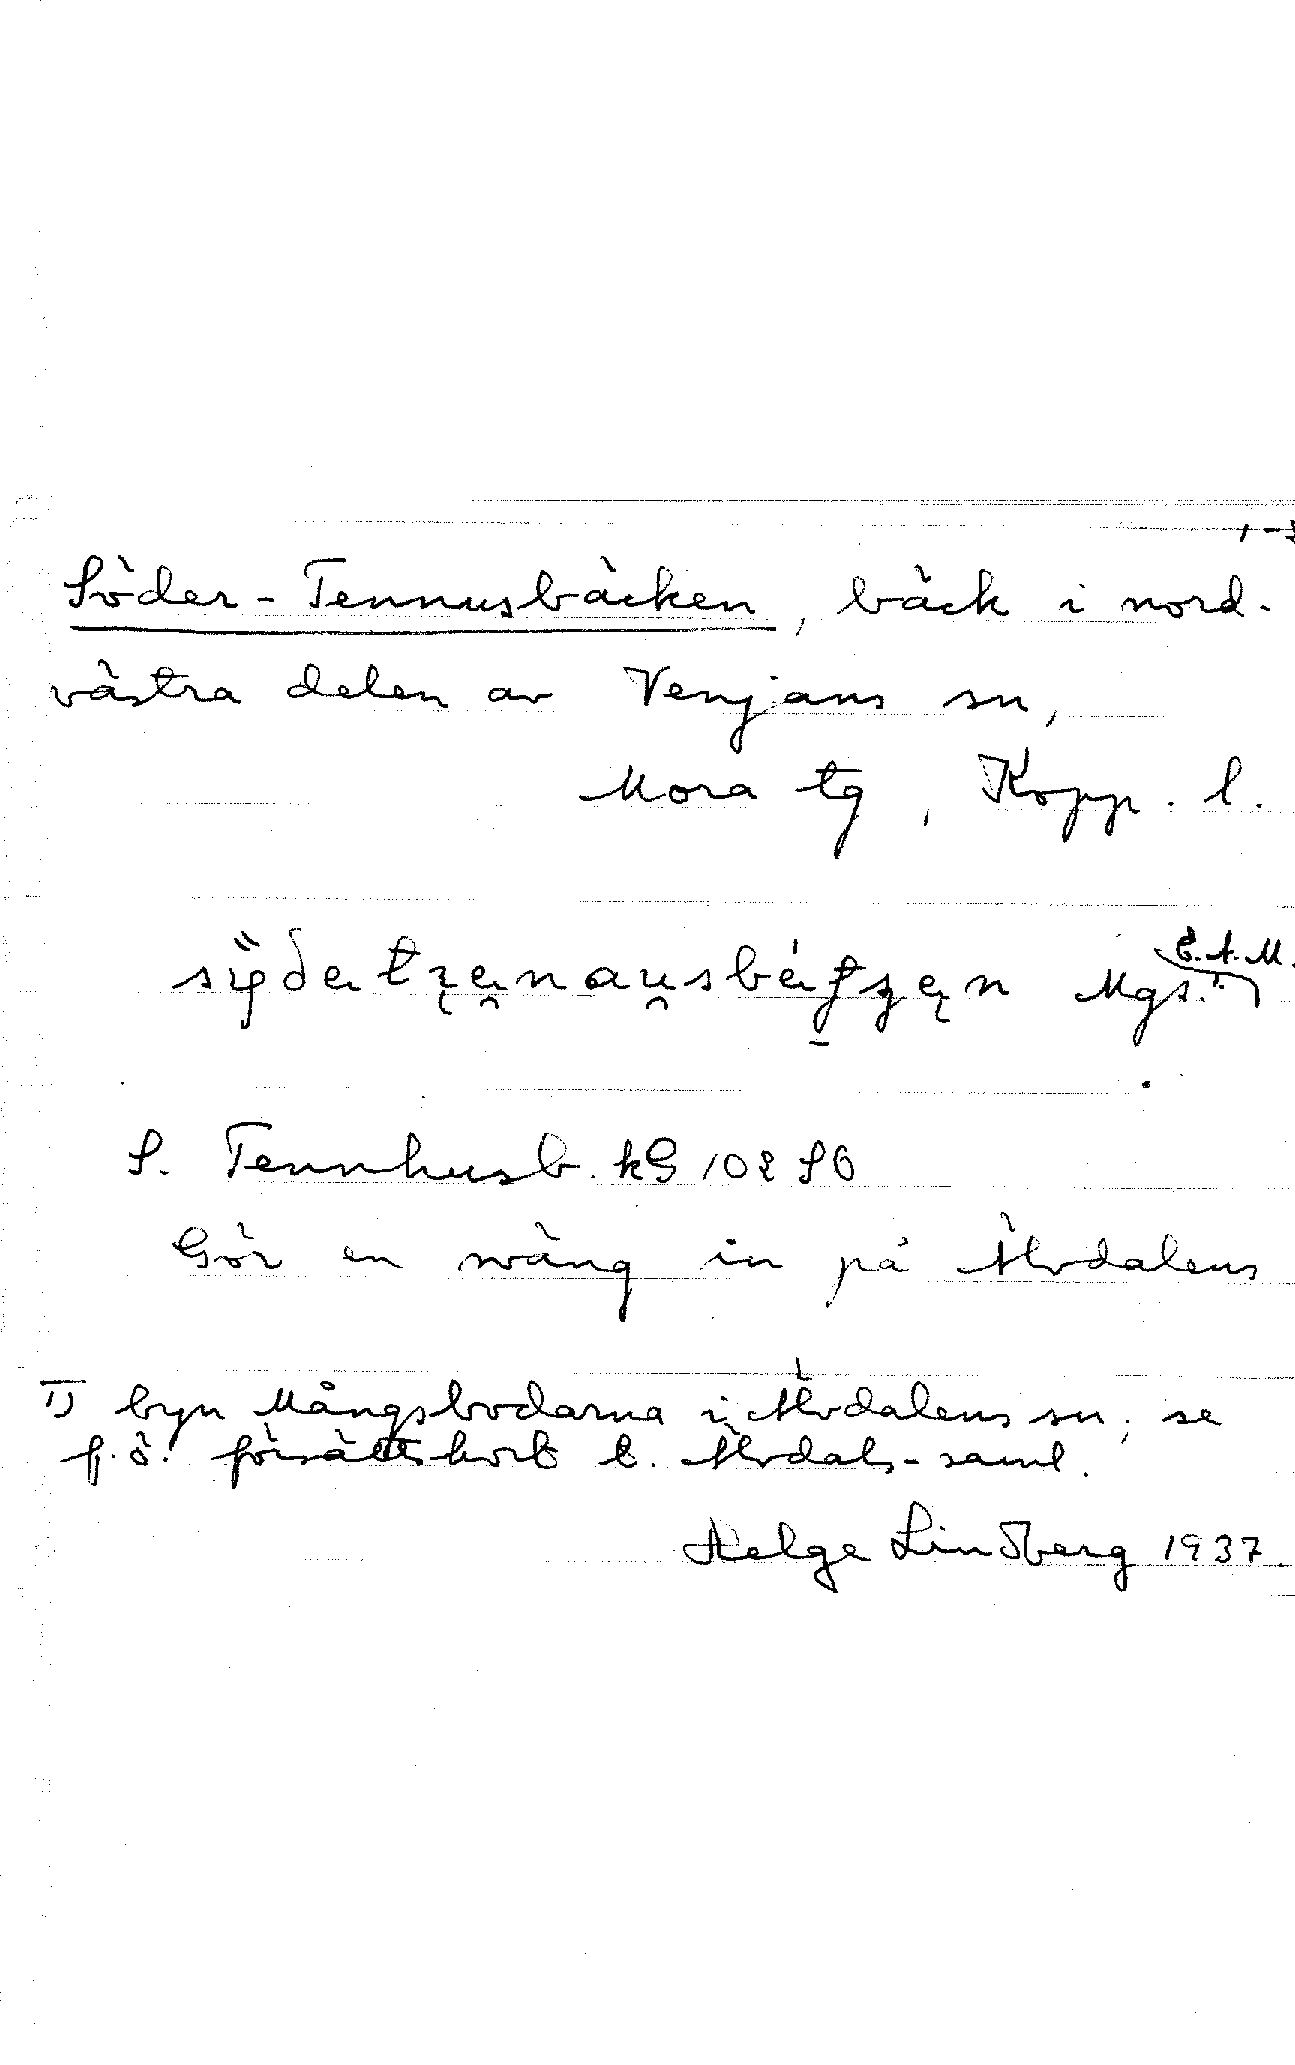 Söder-Tennusbäcken, bäck i nord-
västra delen av Venjans sn,
Mora tg, Kopp. l.
E.A.M.
Mgs.¹⁾
S. Tennhusb. kG 102 SO
Gör en sväng in på Älvdalens
1) byn Mångsbodarna i Älvdalens sn; se
f.ö. försättskort t. Älvdals-saml.
Helge Lindberg 1937.